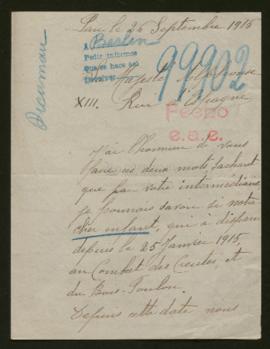 Pau le 26 Septembre 1915
A Berlin
Pedir informes
99902
Sa Majesté Alphonse
XIII. Roi d'Espagne
Fecho
e.a.e.
J'ai l'honneur de vous
faire ces deux mots sachant
que par votre intermédiaire
je pourrais savoir si notre
cher enfant, qui a disparu
depuis le 25 Janvier 1915,
au Combat des Creutes, et
du Bois-Foulon.
Depuis cette date nous